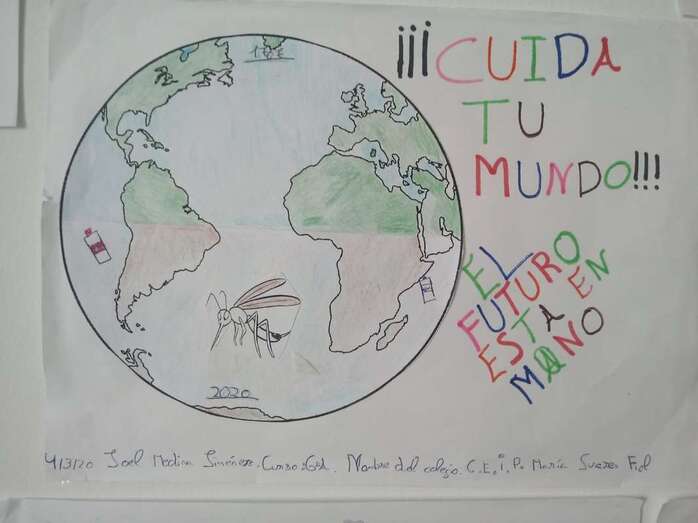 ¡¡¡CUIDA
TU
MUNDO!!!
EL
FUTURO
ESTA EN
MANO
2020
4/3/20 Joel Medina Jiménez. Curso: 6ºA. Nombre del colegio. C.E.i.P. María Suarez Fiol